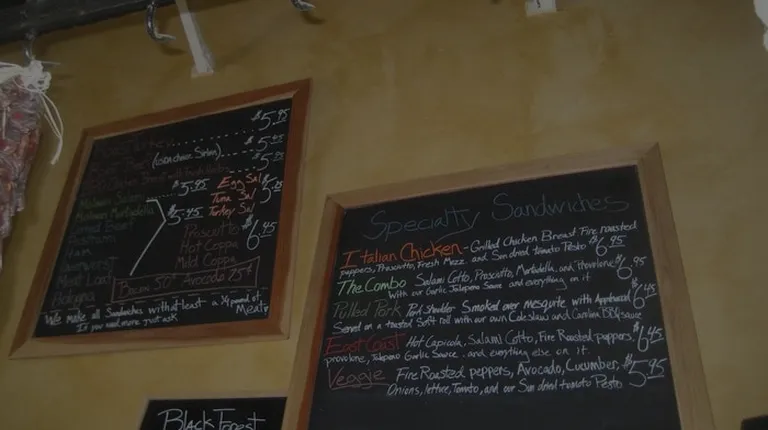 $5.95
$5.45
(USDA choice Sirloin)
$5.95
Egg Sal
$5.25
Tuna Sal
Turkey Sal
$5.95
$5.45
Prosciutto
Hot Coppa
$6.45
Mild Coppa
Pastrami
Ham
Meat Loaf
Bologna
Bacon 50¢ Avocado 25¢
We make all Sandwiches with at least a 1/4 pound of Meat
If you need more just ask
Black Forest
Specialty Sandwiches
Italian Chicken - Grilled Chicken Breast Fire roasted
peppers, Prosciutto, Fresh Mozz. and Sun dried tomato Pesto $6.95
The Combo Salami Cotto, Prosciutto, Mortadella, and Provolone $6.95
With our Garlic Jalapeno Sauce and everything on it
Pulled Pork Pork Shoulder Smoked over mesquite with Applewood $6.45
Served on a toasted Soft roll with our own Coleslaw and Carolina BBQ sauce
East Coast Hot Capicola, Salami Cotto, Fire Roasted peppers, $6.45
provolone, Jalapeno Garlic Sauce and everything else on it.
Veggie Fire Roasted peppers, Avocado, Cucumber, $5.95
Onions, lettuce, Tomato, and our Sun dried tomato Pesto